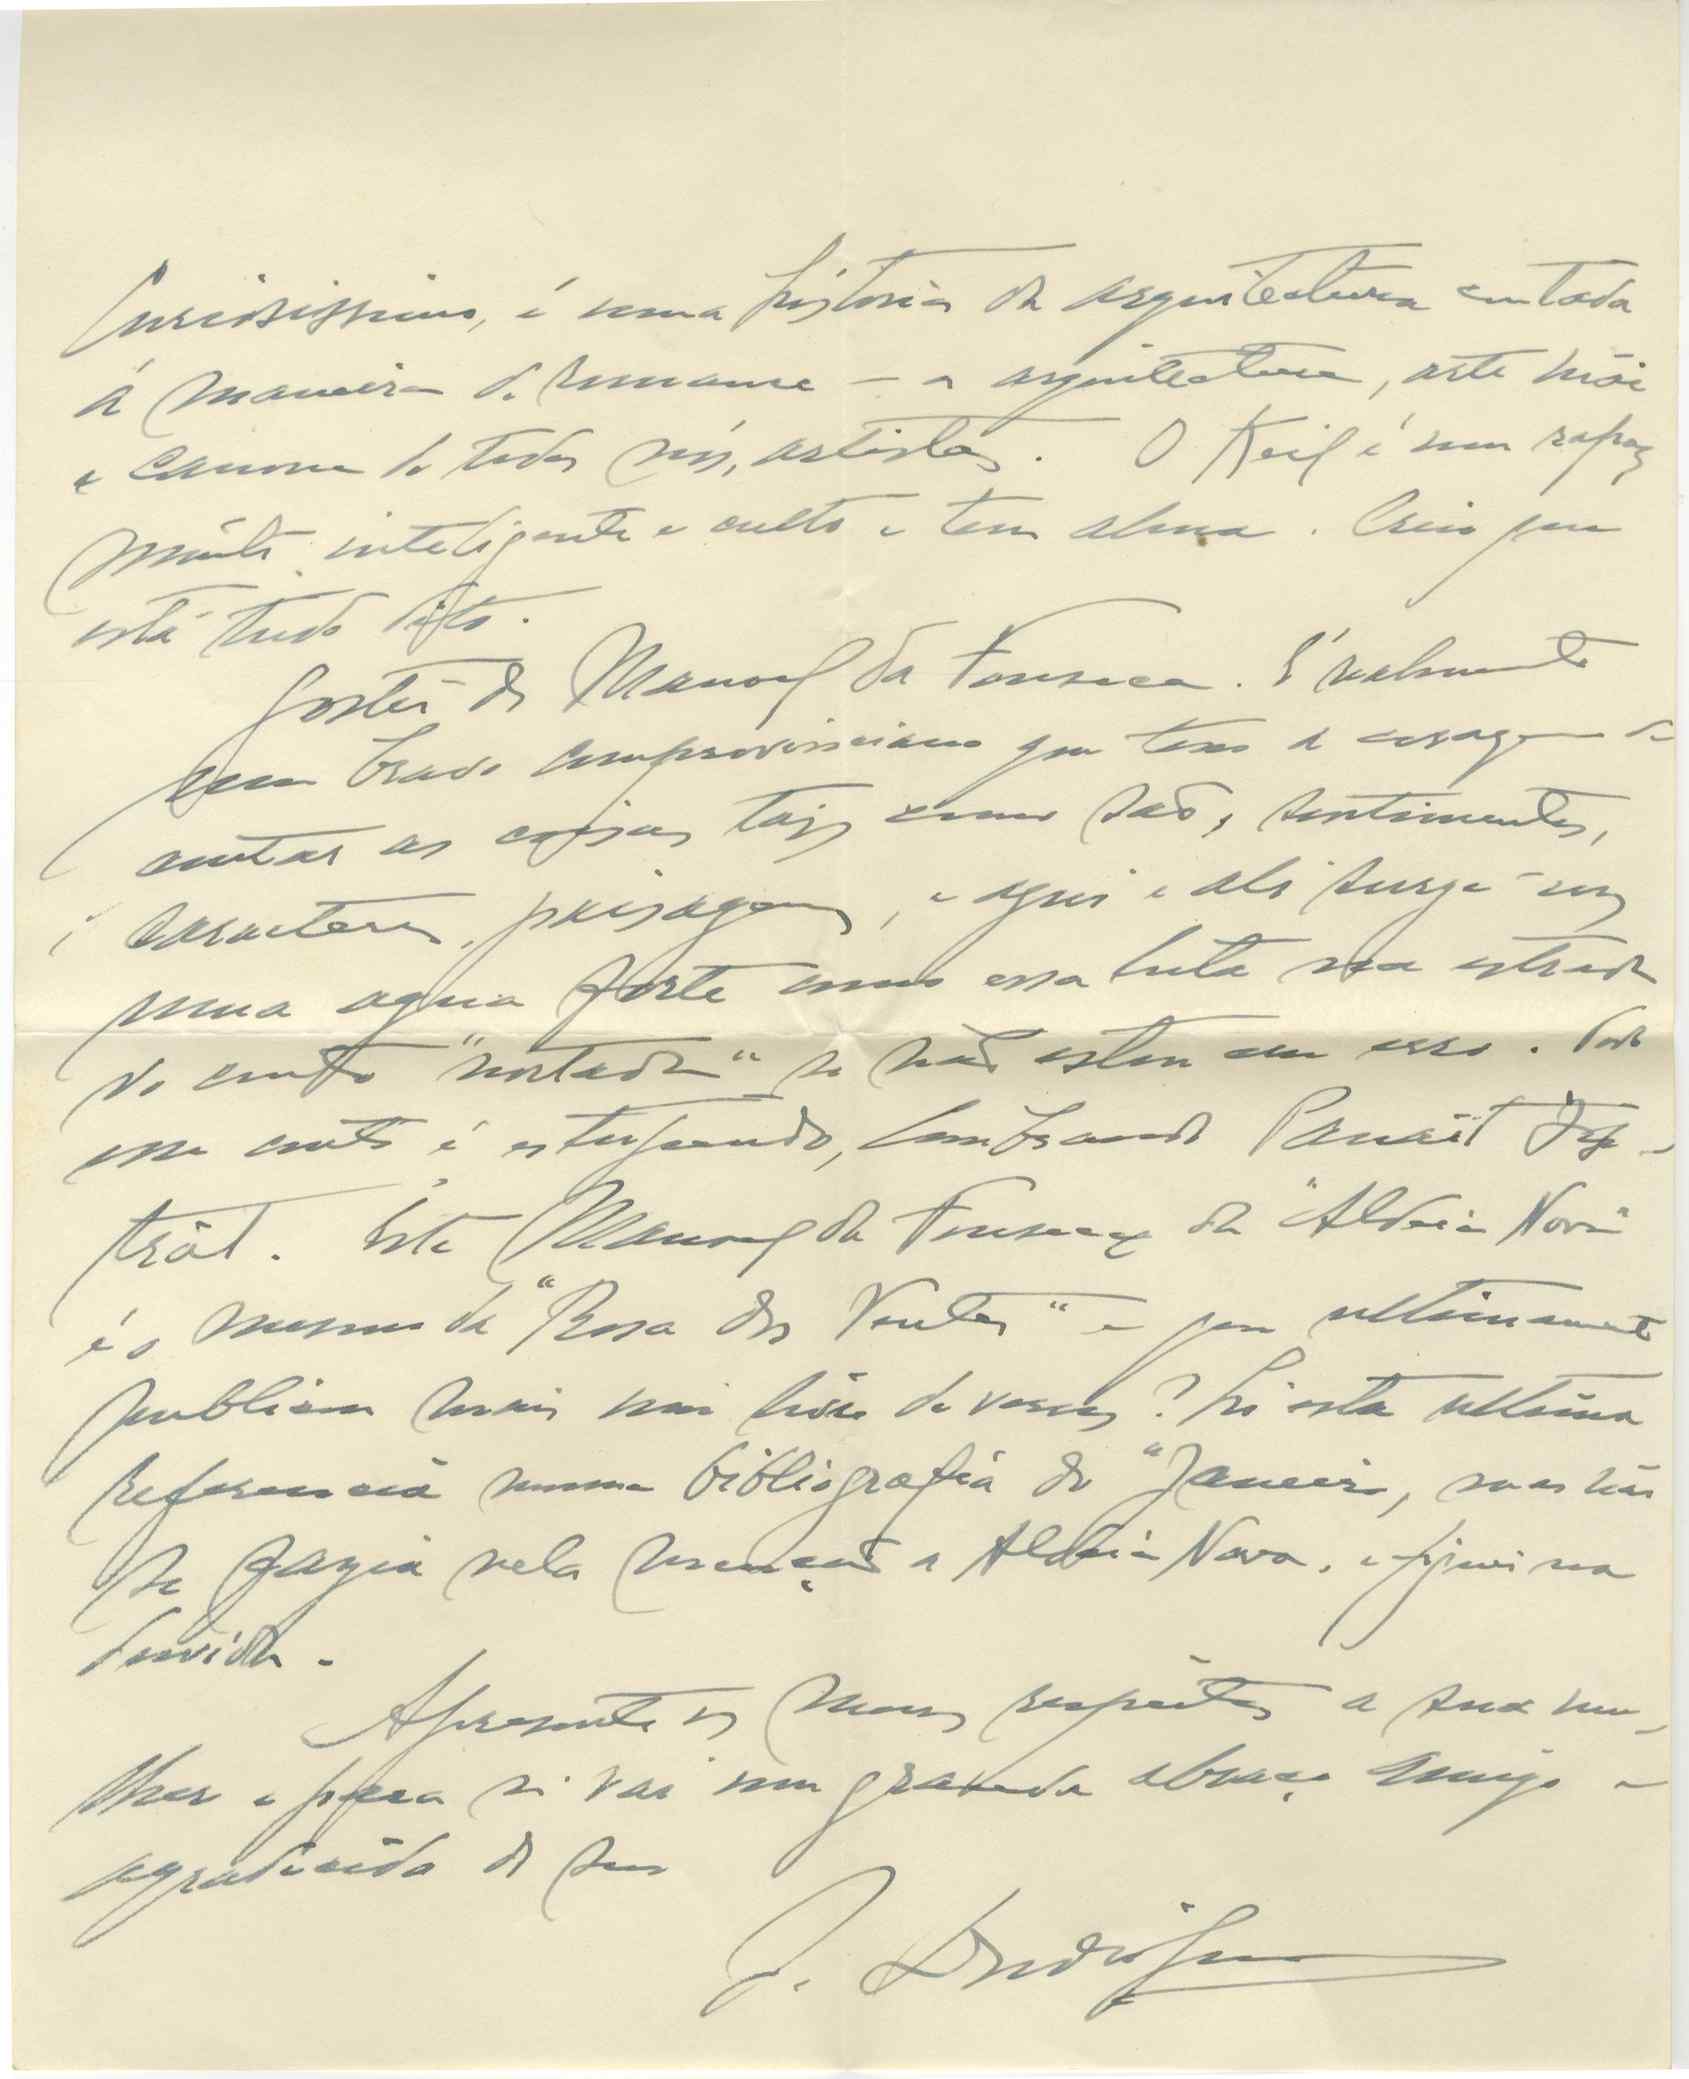 Curiosissimo, é uma história da arquitectura contada
á maneira de romance — a arquitectura, arte mãi
e canone de todos nós, artistas. O Keil é um rapaz
muito inteligente e culto e tem alma. Creio que
está tudo dito.
Gostei do Manoel da Fonseca. É realmente
um bravo comprovinciano que tem a coragem de
contar as coisas tais como são, sentimentos,
caracteres, paisagens, e aqui e ali surge-nos
uma agua forte como essa luta na estrada
do conto "nortada" se não estou em erro. Todo
esse conto é estupendo, lembrando Panait Is-
trati. Este Manoel da Fonseca da "Aldeia Nova"
é o mesmo da "Rosa dos Ventos" e que ultimamente
publicou mais um livro de versos? Li esta ultima
referencia numa bibliografia do "Janeiro, mas não
se fazia nela menção a Aldeia Nova, e fiquei na
duvida.
Apresente os meus respeitos a sua mu-
lher e para si vai um grande abraço amigo e
agradecido do seu